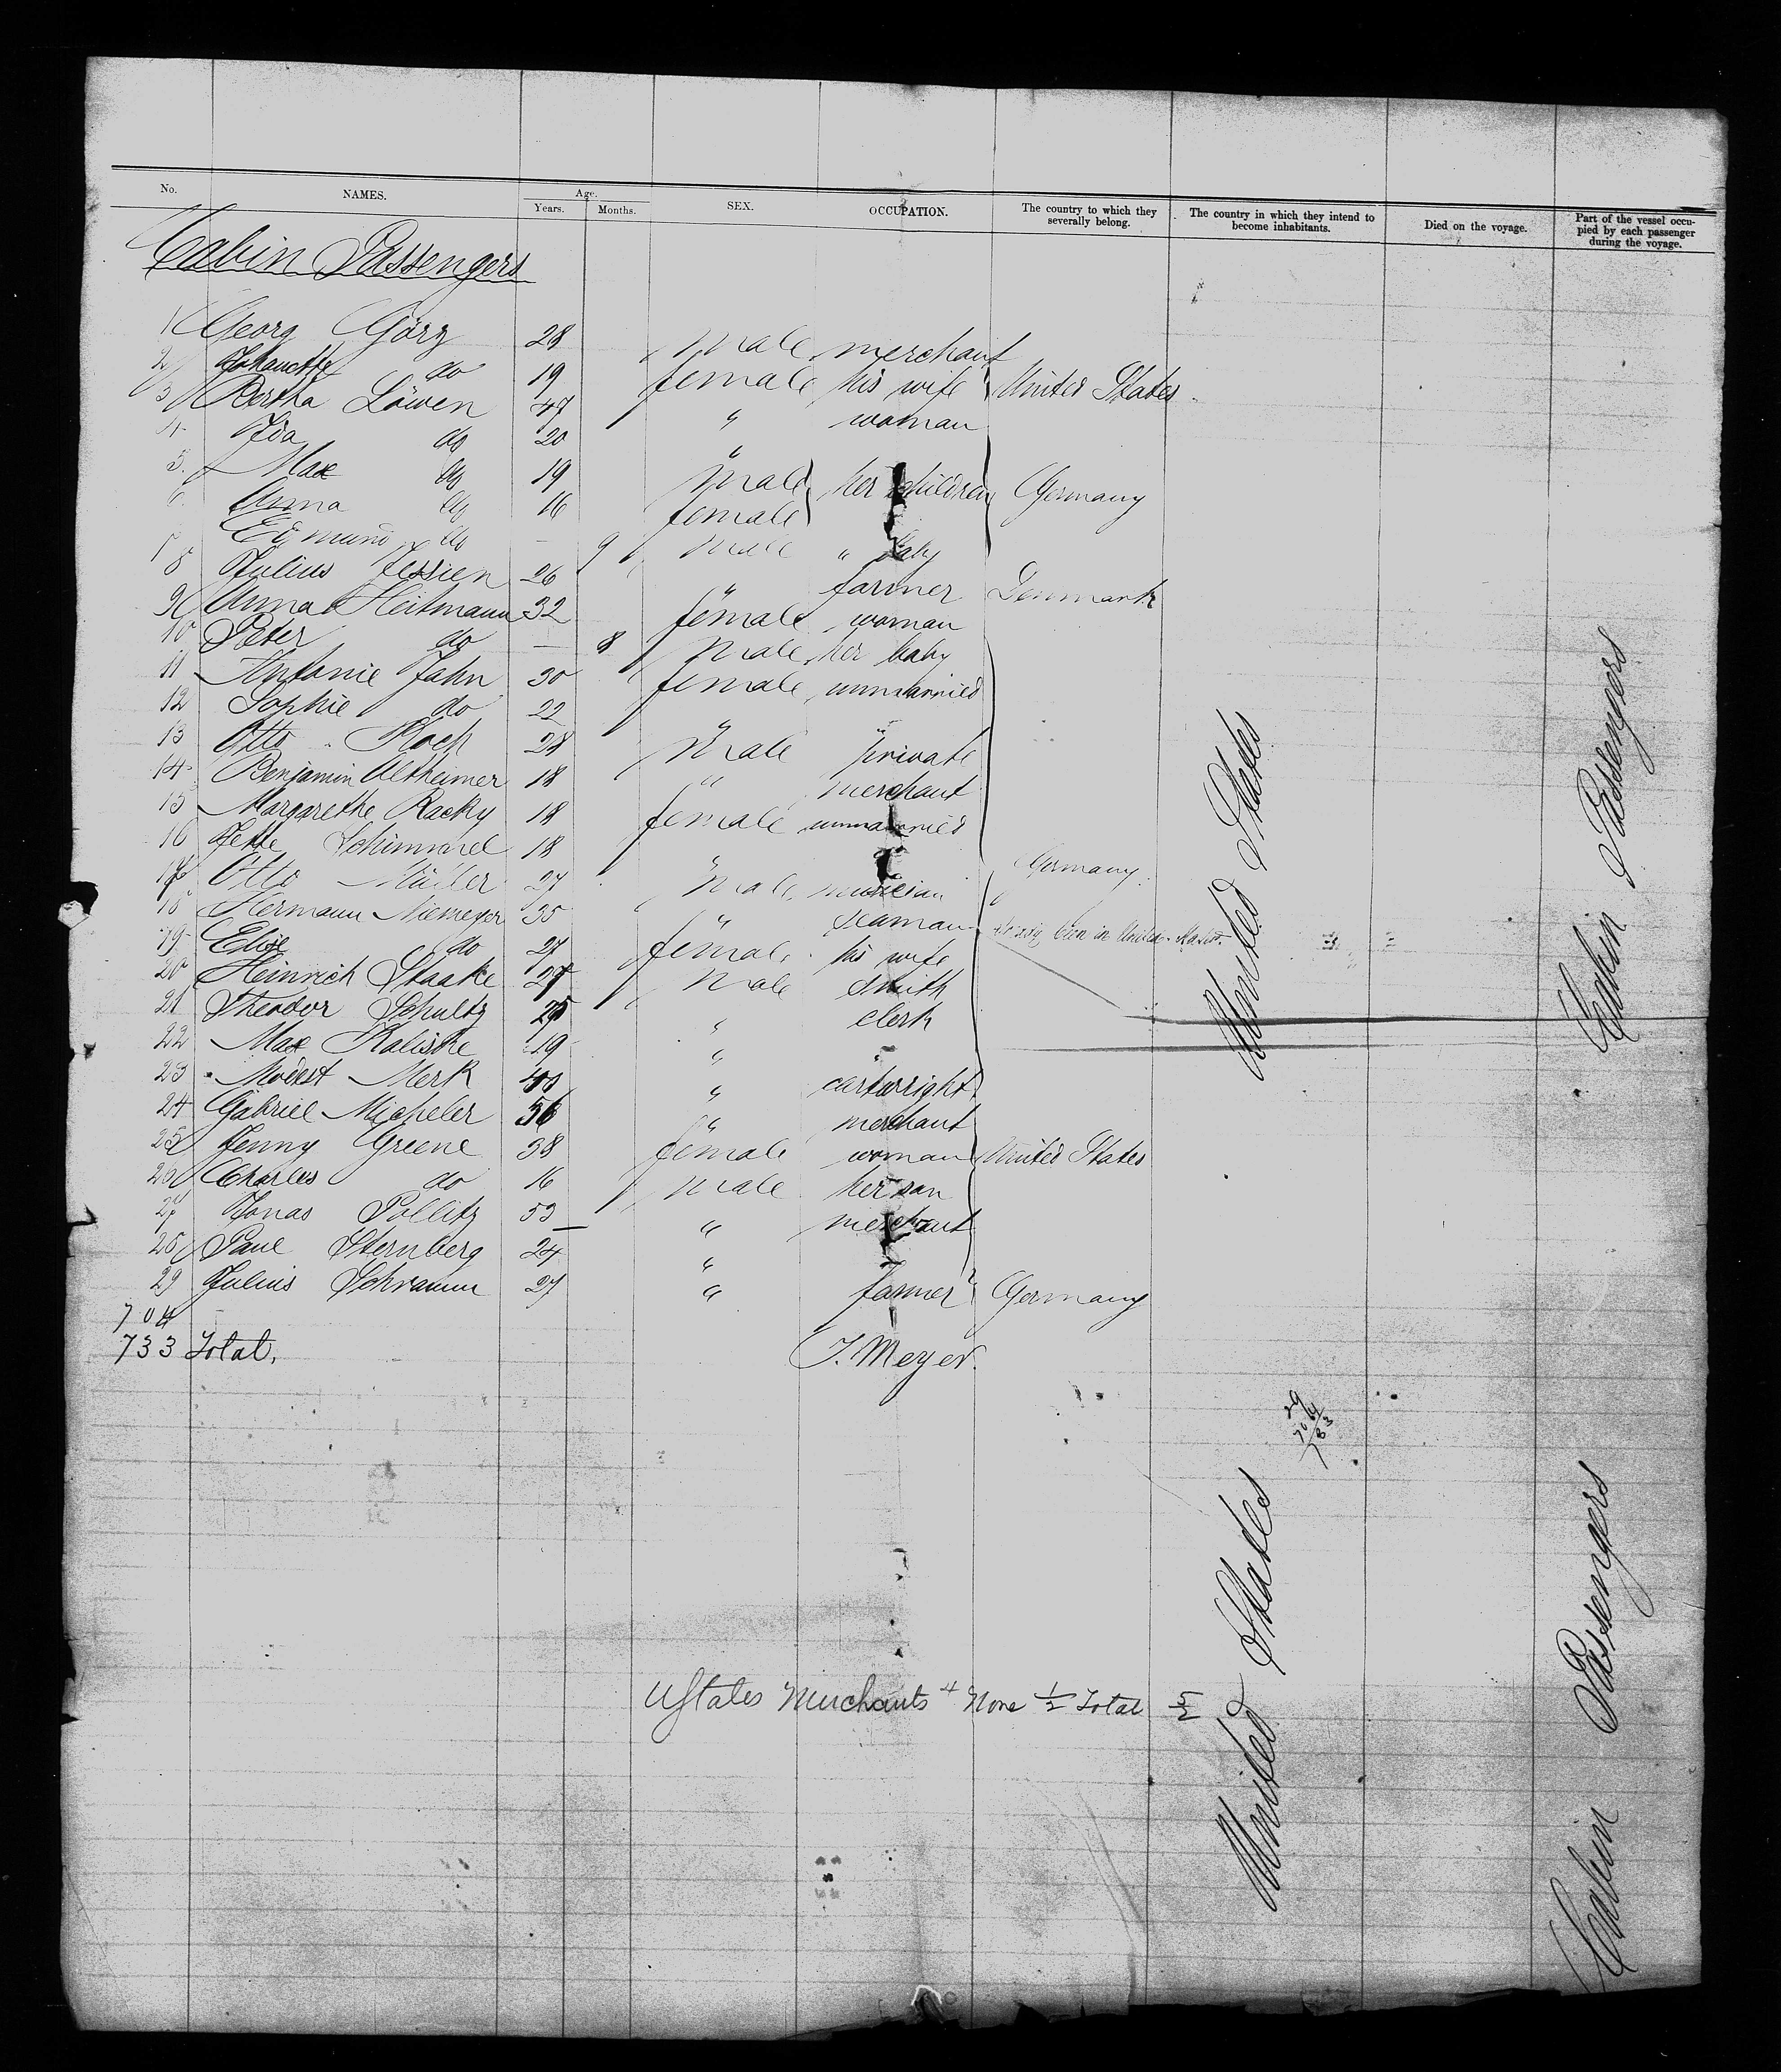 No. NAMES. Age. Years. Months. SEX. OCCUPATION. The country to which they severally belong. The country in which they intend to become inhabitants. Died on the voyage. Part of the vessel occupied by each passenger during the voyage.
Cabin Passengers
1 Georg Görz 28 male merchant
2 do 19 female his wife United States
3 Bertha Löwen 47 " woman
4 Ida do 20 "
5. Max do 19 male her children Germany
6. Anna do 16 female
Edmund do — 9 male " baby
8 Julius Jessien 26 " farmer Denmark
9 Anna Heitmann 32 female woman
10 Peter do — 8 male her baby
11 Antonie Jahn 30 female unmarried
12 Sophie do 22 " "
13 Otto Koch 28 male private
14 Benjamin Altheimer 18 " merchant
15 Margarethe Racky 18 female unmarried
16 Jette Schimmel 18 " Germany.
17 Otto Müller 27 male musician
18 Hermann Niemeyer 35 " seaman
19 Elise do 27 female his wife
20 Heinrich Staake 27 male smith
21 Theodor Schultz 25 " clerk
22 Max Kaliske 19 " "
23 Modest Merk 40 " cartwright
24 Gabriel Micheler 56 " merchant
25 Jenny Greene 38 female woman United States
26 Charles do 16 male her son
27 Jonas Pollitz 53 " merchant
28 Paul Sternberg 24 " "
29 Julius Schramm 27 " farmer Germany
704
733 Total.
J. Meyer.
United States
Cabin Passengers
29
704
733
UStates Merchants 4 None 1/2 Total 5/2
United States
Cabin Passengers